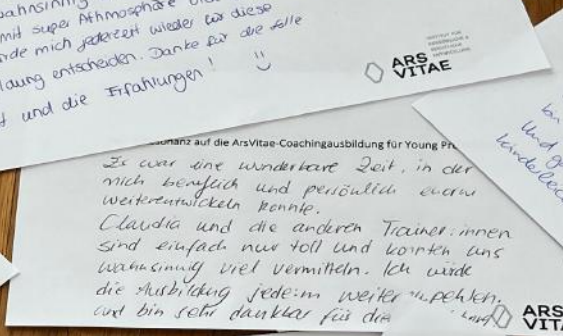 mit super Athmosphäre
rde mich jederzeit wieder für diese
dung entscheiden. Danke für die tolle
und die Erfahrungen! :)
ARS
VITAE
auf die ArsVitae-Coachingausbildung für Young
Es war eine wunderbare Zeit, in der
mich beruflich und persönlich enorm
weiterentwickeln konnte.
Claudia und die anderen Trainer:innen
sind einfach nur toll und konnten uns
wahnsinnig viel vermitteln. Ich würde
die Ausbildung jede:m weiter
und bin sehr dankbar für die
Und
kinderleic
ARS
VIT